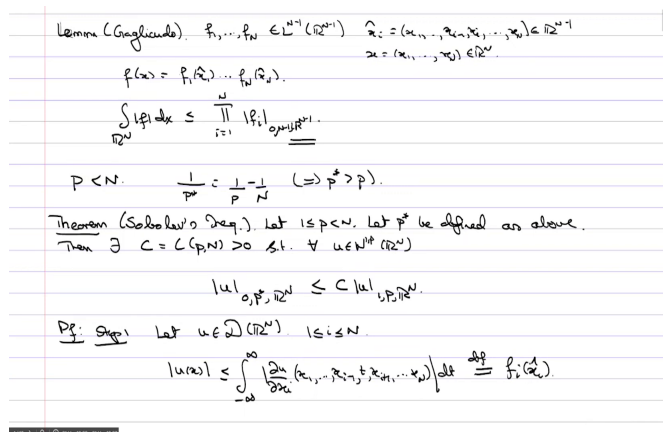 Lemma (Gagliardo). f₁,…,f_N ∈ L^{N-1}(ℝ^{N-1}) x̂ᵢ = (x₁,…,xᵢ₋₁,xᵢ,…,x_N) ∈ ℝ^{N-1}
x = (x₁,…,x_N) ∈ ℝ^N
f(x) = f₁(x̂₁)…f_N(x̂_N).
∫_{ℝ^N} |f| dx ≤ ∏_{i=1}^{N} |fᵢ|_{0,N-1,ℝ^{N-1}}.
p < N. 1/p* = 1/p - 1/N (⇒ p* > p).
Theorem (Sobolev's Ineq.). Let 1 ≤ p < N. Let p* be defined as above.
Then ∃ C = C(p,N) > 0 s.t. ∀ u ∈ W^{1,p}(ℝ^N)
|u|_{0,p*,ℝ^N} ≤ C |u|_{1,p,ℝ^N}.
Pf: Step 1 Let u ∈ 𝒟(ℝ^N) 1 ≤ i ≤ N
|u(x)| ≤ ∫_{-∞}^{∞} |∂u/∂xᵢ (x₁,…,xᵢ₋₁,t,xᵢ₊₁,…x_N)| dt =^{def} fᵢ(x̂ᵢ).